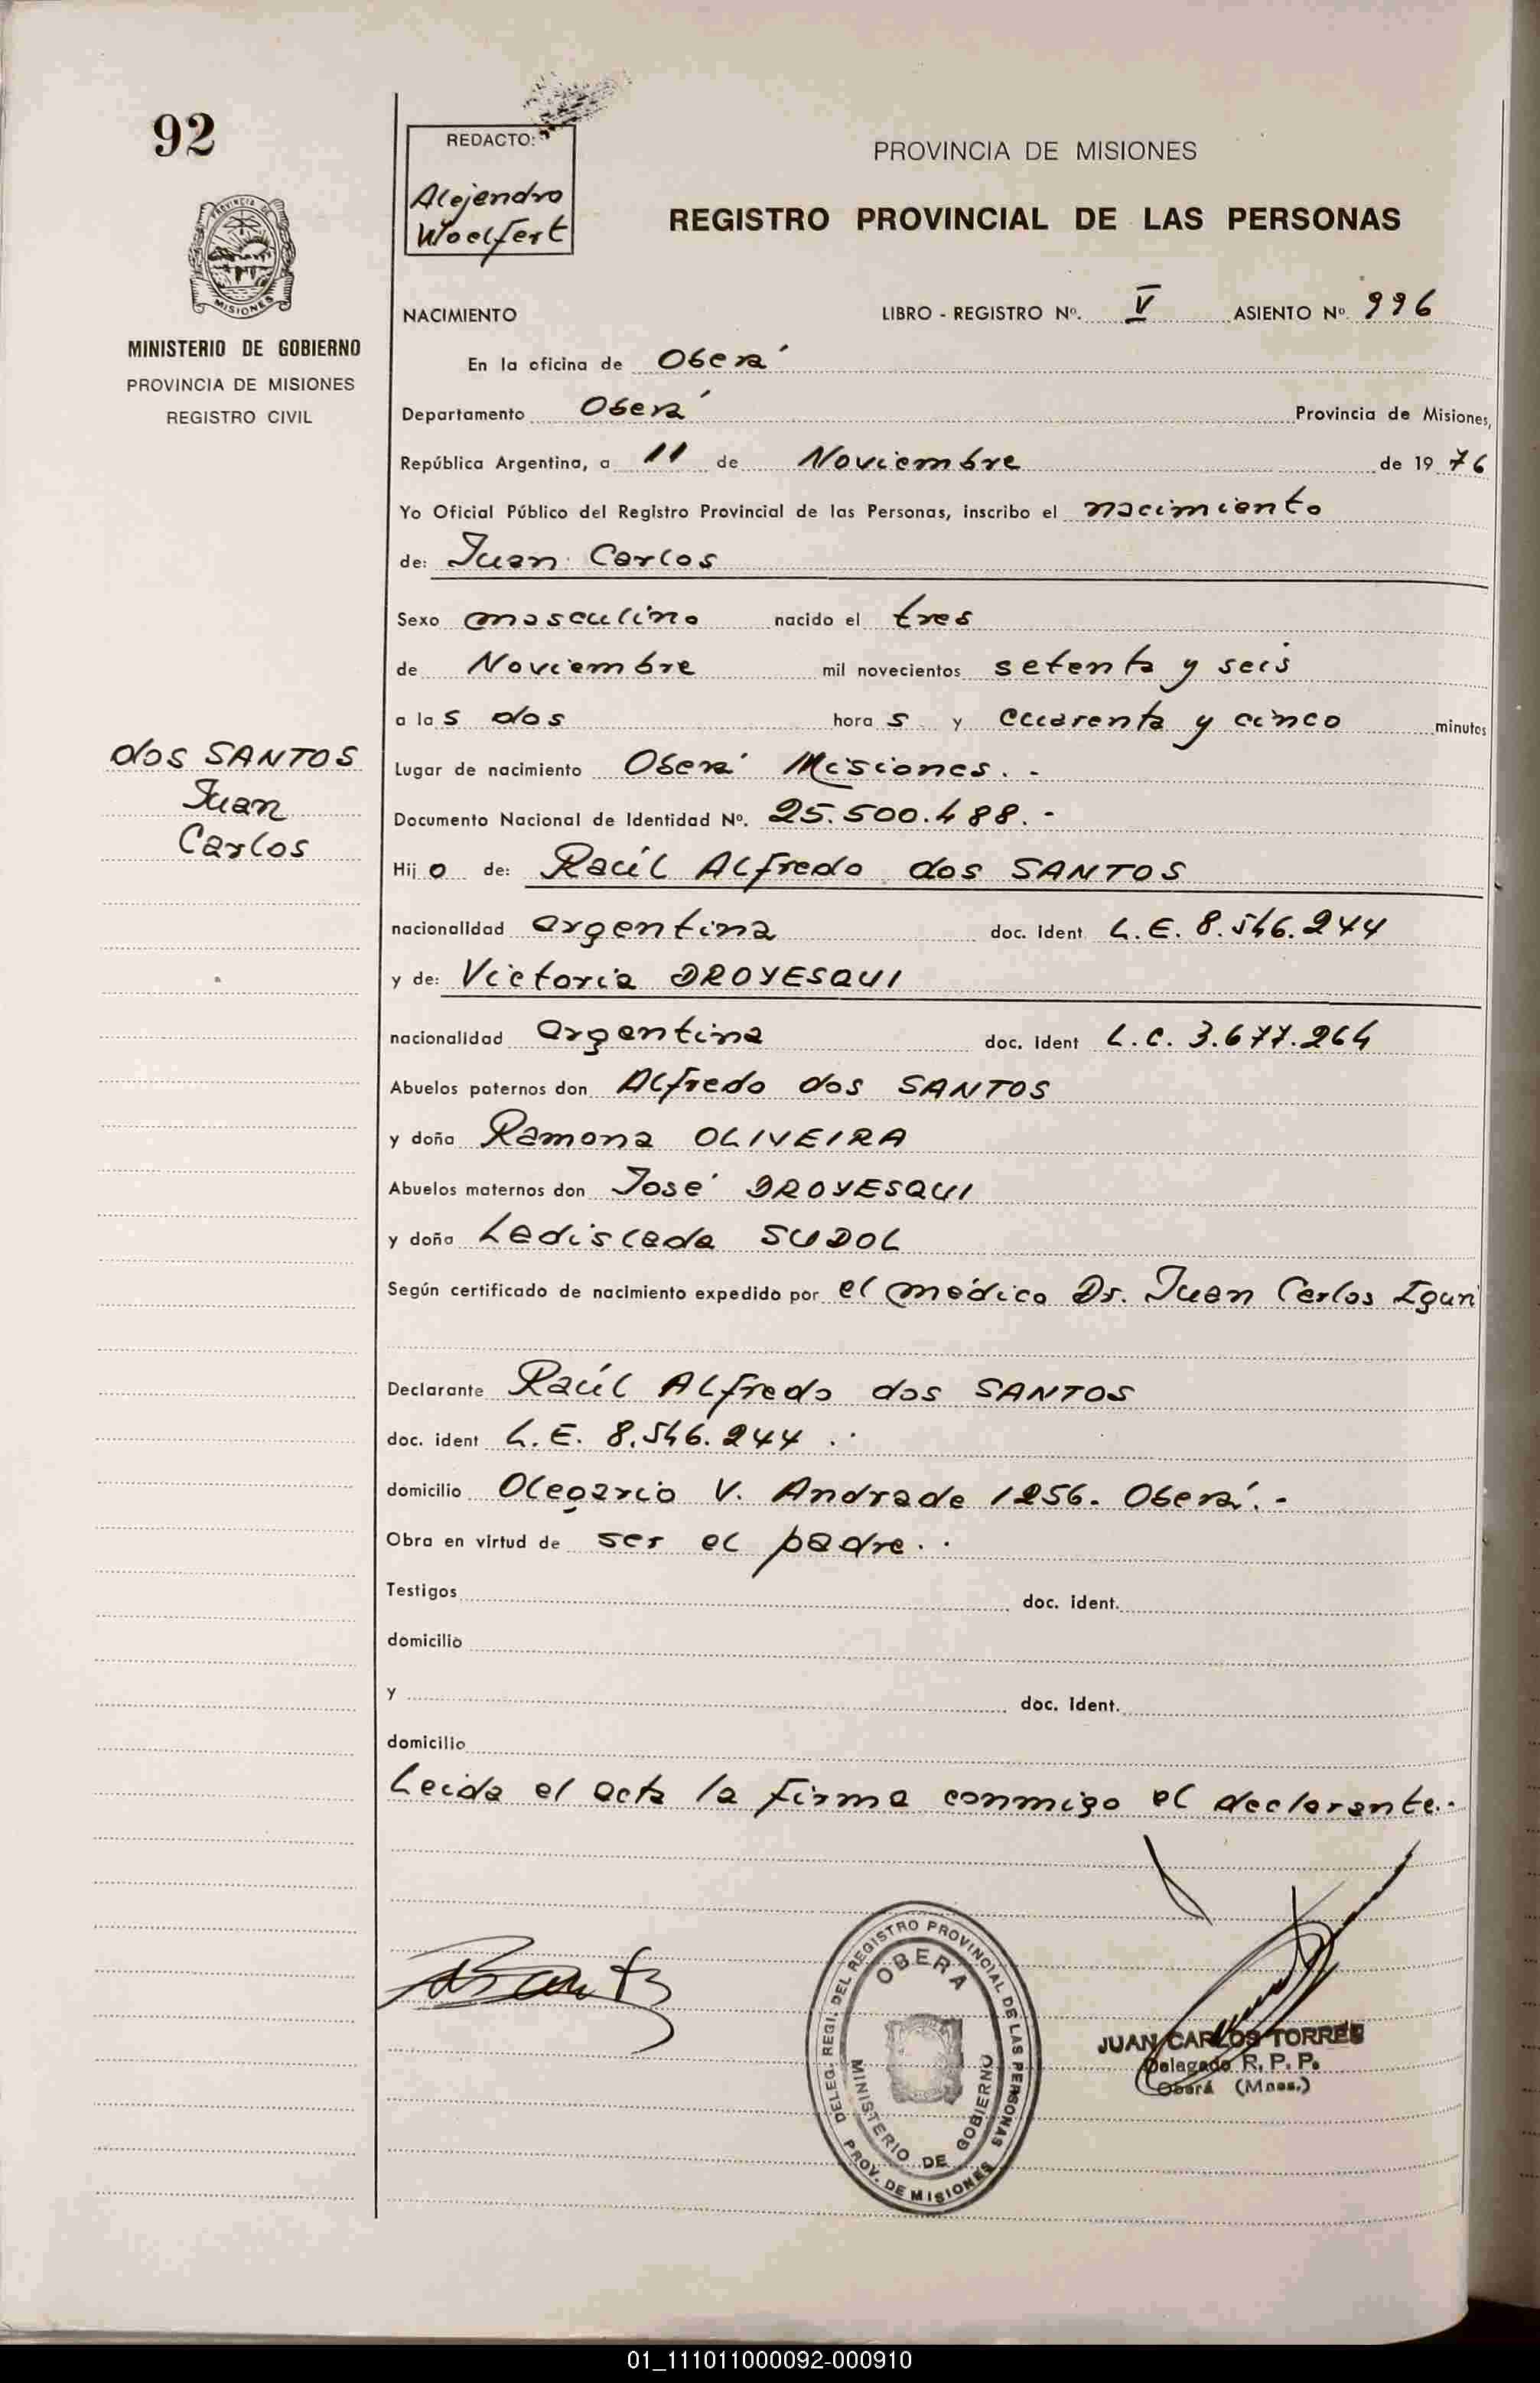 92
REDACTO:
Alejandro
Woelfert
PROVINCIA DE MISIONES
REGISTRO PROVINCIAL DE LAS PERSONAS
MISIONES
MINISTERIO DE GOBIERNO
PROVINCIA DE MISIONES
REGISTRO CIVIL
NACIMIENTO LIBRO - REGISTRO Nº. V ASIENTO Nº. 996
En la oficina de Oberá
Departamento Oberá Provincia de Misiones,
República Argentina, a 11 de Noviembre de 1976
Yo Oficial Público del Registro Provincial de las Personas, inscribo el nacimiento
de: Juan Carlos
Sexo masculino nacido el tres
de Noviembre mil novecientos setenta y seis
a las dos horas y cuarenta y cinco minutos
dos SANTOS
Juan
Carlos
Lugar de nacimiento Oberá Misiones.-
Documento Nacional de Identidad Nº. 25.500.488.-
Hijo de: Raúl Alfredo dos SANTOS
nacionalidad argentina doc. ident L.E. 8.546.244
y de: Victoria DROYESQUI
nacionalidad argentina doc. ident L.C. 3.677.264
Abuelos paternos don Alfredo dos SANTOS
y doña Ramona OLIVEIRA
Abuelos maternos don José DROYESQUI
y doña Ladislada SUDOL
Según certificado de nacimiento expedido por el médico Dr. Juan Carlos
Declarante Raúl Alfredo dos SANTOS
doc. ident L.E. 8.546.244 .-
domicilio Olegario V. Andrade 1256. Oberá.-
Obra en virtud de ser el padre.-
Testigos doc. ident.
domicilio
y doc. ident.
domicilio
Leida el acta la firma conmigo el declarante.-
DELEG. REGI. DEL REGISTRO PROVINCIAL DE LAS PERSONAS
PROV. DE MISIONES
OBERA
MINISTERIO DE GOBIERNO
JUAN CARLOS TORRES
Delegado R. P. P.
Oberá (Mnes.)
01_111011000092-000910